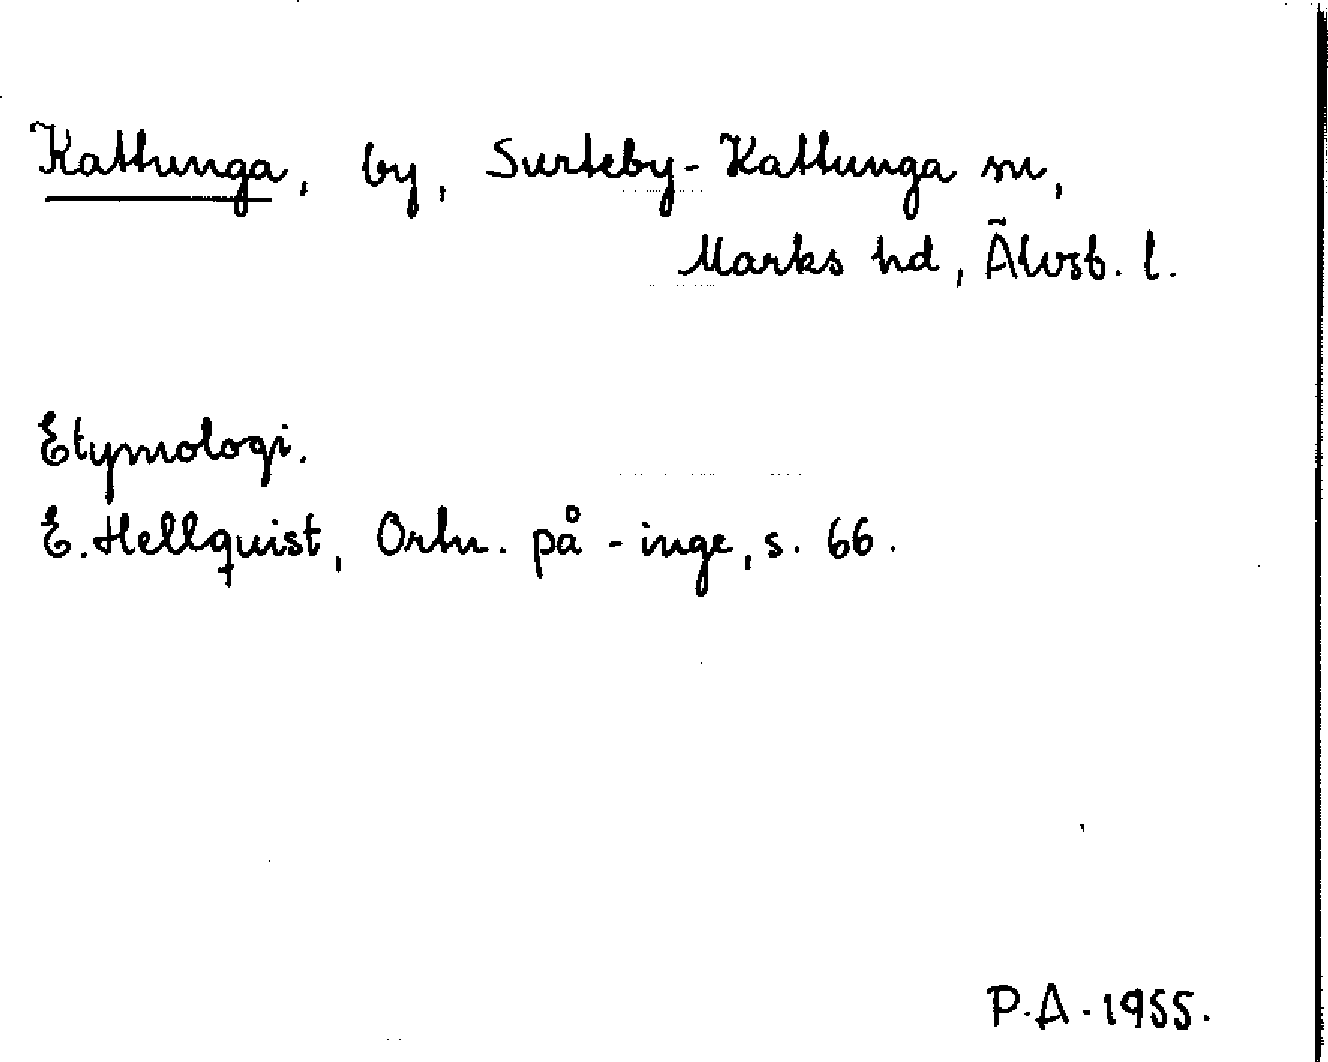 Kattunga, by, Surteby-Kattunga sn,
Marks hd, Älvsb. l.
Etymologi.
E. Hellquist, Ortn. på -inge, s. 66.
P.A. 1955.